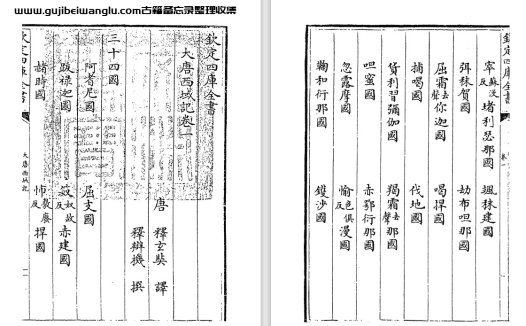 www.gujibeiwanglu.com古籍备忘录整理收集
欽定四庫全書
大唐西域記卷一
唐 釋玄奘 譯
釋辯機 撰
三十四國
阿耆尼國 屈支國
跋祿迦國 笯奴故反赤建國
赭時國 㤄敷廢反捍國
欽定四庫全書
大唐西域記
欽定四庫全書
窣蘇沒反堵利瑟那國 颯秣建國
弭秣賀國 劫布呾那國
屈霜去聲你迦國 喝捍國
捕喝國 伐地國
貨利習彌伽國 羯霜去聲那國
呾蜜國 赤鄂衍那國
忽露摩國 愉色俱反漫國
鞠和衍那國 鑊沙國